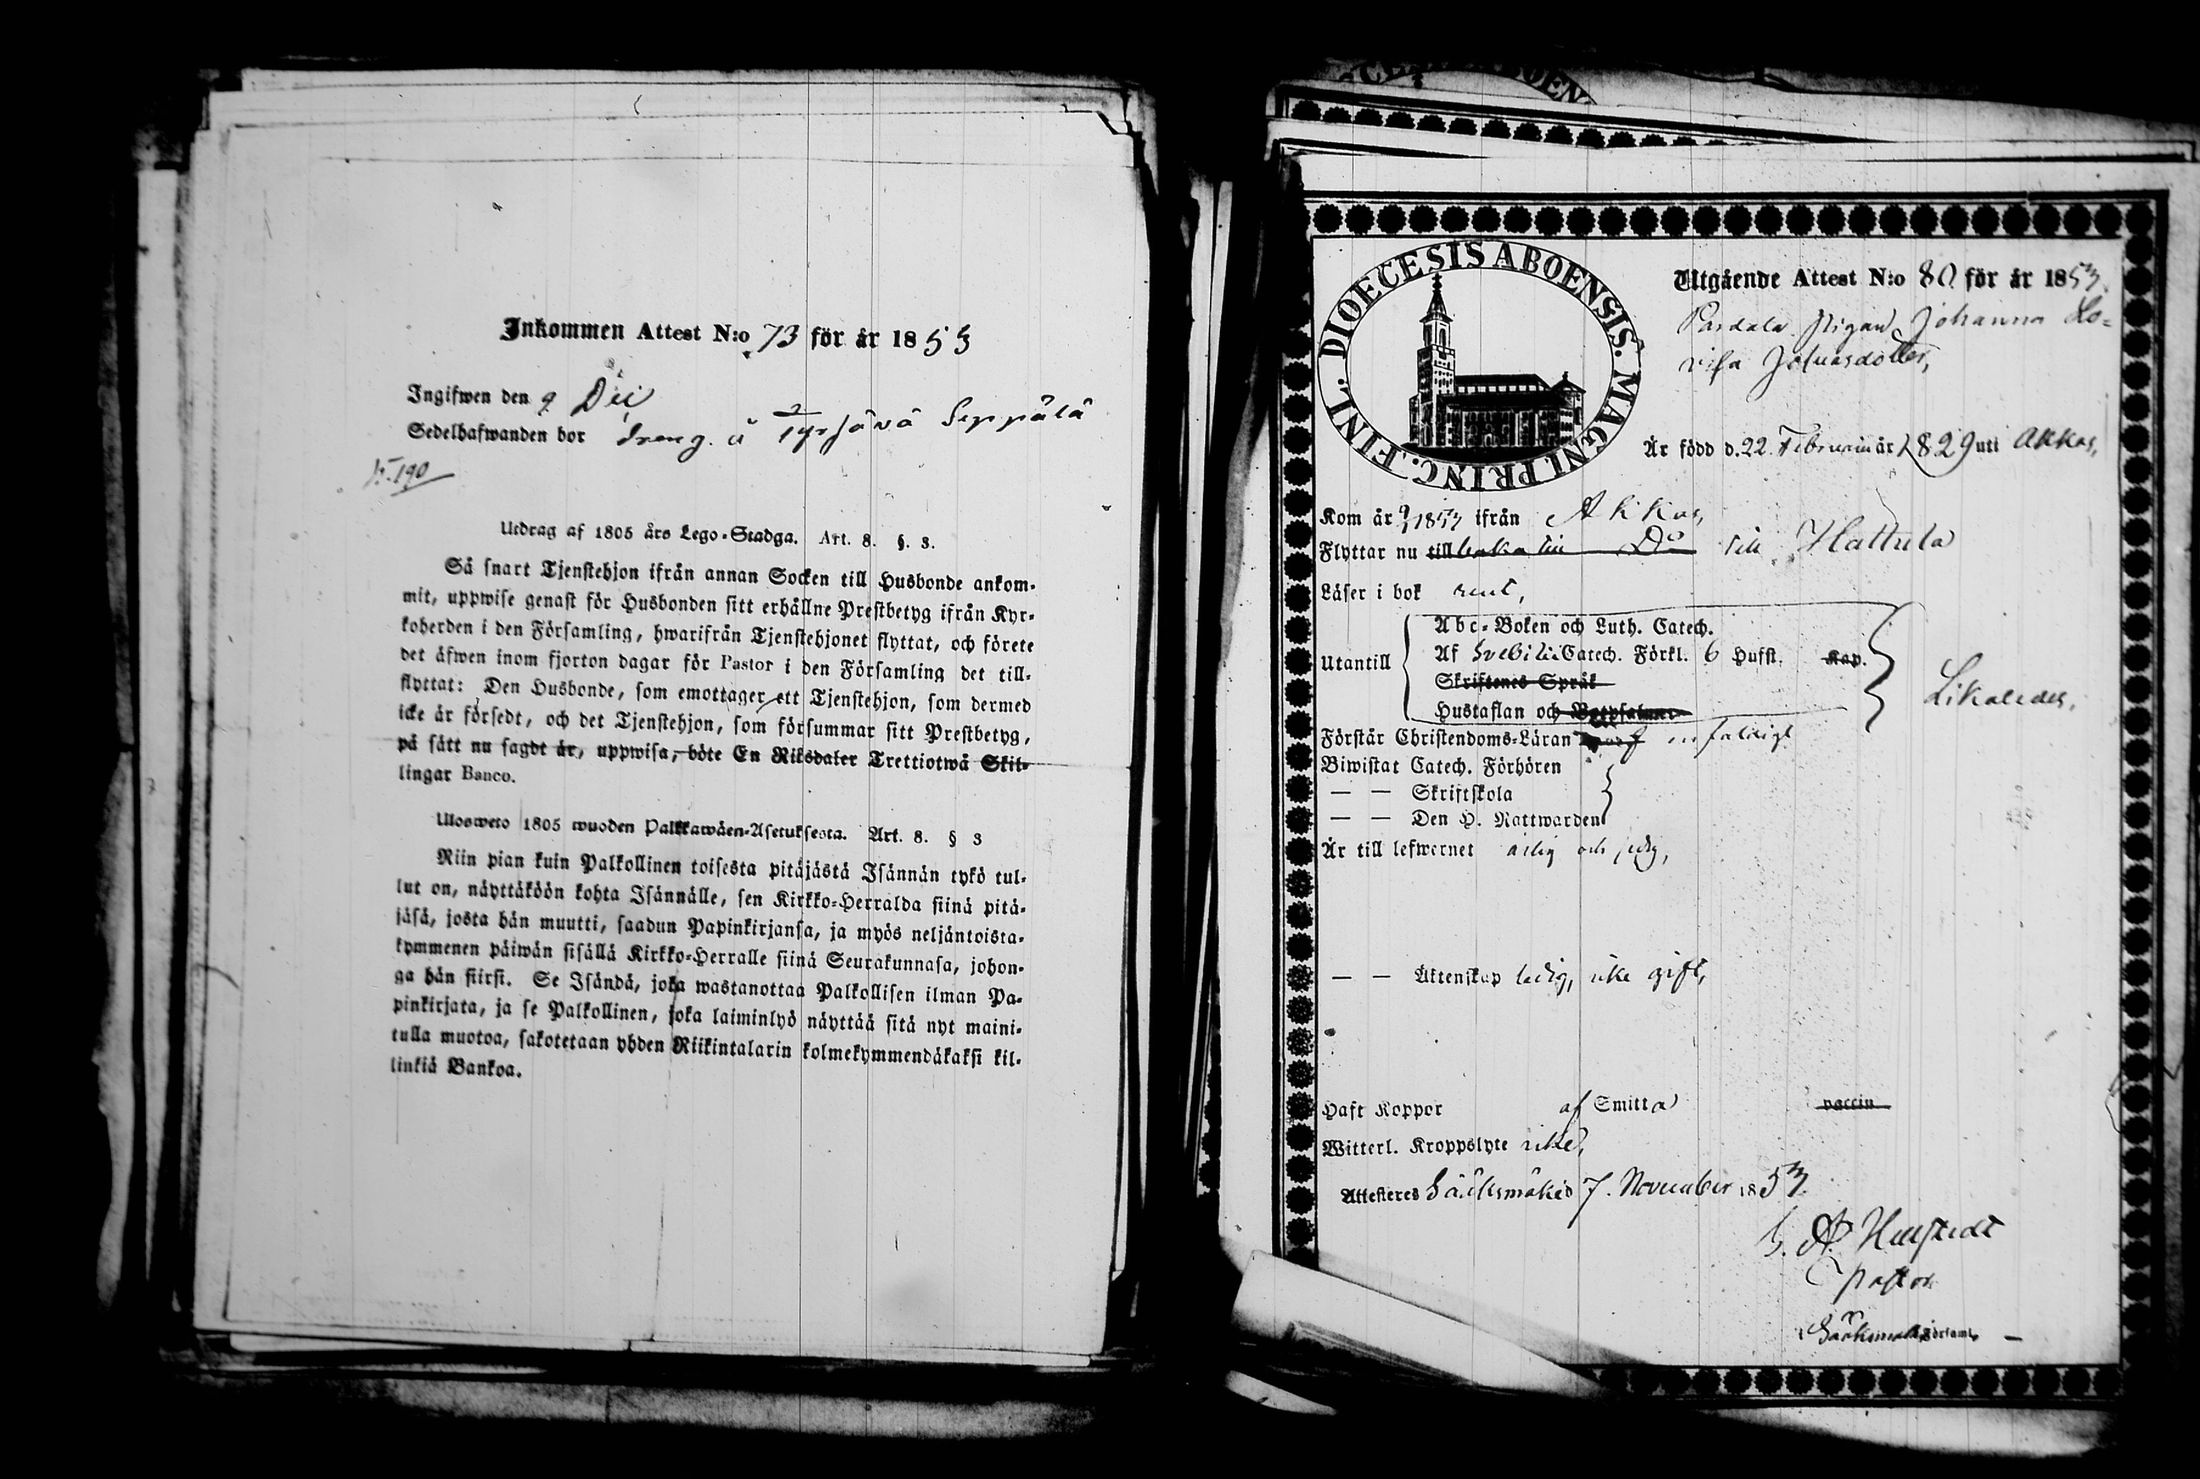 Inkommen Attest N:o 73 för år 1853
Ingifwen den 9 Dec
Sedelhafwanden bor dreng. å Tyrfävä Seppälä
190
Utdrag af 1805 års Lego-Stadga. Art. 8. §. 3.
Så snart Tjenstehjon ifrån annan Socken till Husbonde ankom-
mit, uppwise genast för Husbonden sitt erhållne Prestbetyg ifrån Kyr-
koherden i den Församling, hwarifrån Tjenstehjonet flyttat, och förete
det äfwen inom fjorton dagar för Pastor i den Församling det till-
flyttat: Den Husbonde, som emottager ett Tjenstehjon, som dermed
icke är försedt, och det Tjenstehjon, som försummar sitt Prestbetyg,
på sätt nu sagdt är, uppwisa, böte En Riksdaler Trettiotwå Skil-
lingar Banco.
Ulosweto 1805 wuoden Palkkawäen-Asetuksesta. Art. 8. § 3
Niin pian kuin Palkollinen toisesta pitäjästä Isännän tykö tul-
lut on, näyttäköön kohta Isännälle, sen Kirkko-Herralda siinä pitä-
jäsä, josta hän muutti, saadun Papinkirjansa, ja myös neljäntoista-
kymmenen päiwän sisällä Kirkko-Herralle siinä Seurakunnasa, johon-
ga hän siirsi. Se Isändä, joka wastanottaa Palkollisen ilman Pa-
pinkirjata, ja se Palkollinen, joka laiminlyö näyttää sitä nyt maini-
tulla muotoa, sakotetaan yhden Riikintalarin kolmekymmendäkaksi kil-
linkiä Bankoa.
DIOECESIS ABOENSIS. MAGNI. PRINC. FINL.
Utgående Attest N:o 80 för år 1853.
Pigan Johanna Lo-
visa Johansdotter,
Är född d. 22 Februarii år 1829 uti Akkas,
Kom år 1853 ifrån Akkas,
Flyttar nu till Do till Hattula
Läser i bok rent,
Utantill
Abc-Boken och Luth. Catech.
Af Svebilii Catech. Förkl. 6 Hufst. Kap.
Skriftenes Språk
Hustaflan och Botpsalmer
Likaledes,
Förstår Christendoms-Läran enfaldigt
Biwistat Catech. Förhören
— — Skriftskola
— — Den H. Nattwarden
Är till lefwernet ärlig och
— — Äktenskap ledig, icke gift,
Haft Koppor af Smitta vaccin
Witterl. Kroppslyte icke,
Attesteres Sääksmäki d 7. November 1853
Pastor
Sääksmäki Förfaml.